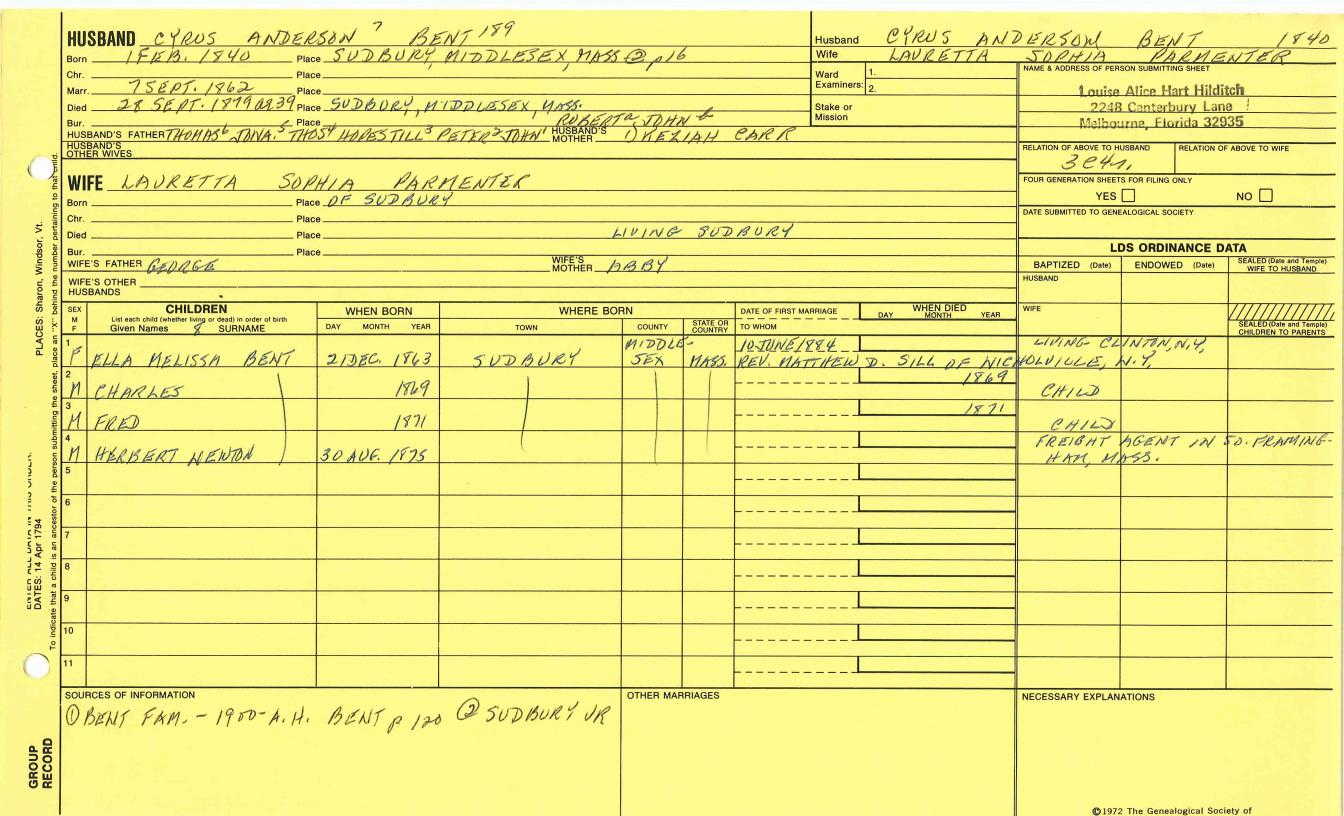 HUSBAND CYRUS ANDERSON 7 BENT 189
Born 1 FEB. 1840 Place SUDBURY, MIDDLESEX, MASS ② p 16
Chr. Place
Marr. 7 SEPT. 1862 Place
Died 28 SEPT. 1879 ag 39 Place SUDBURY, MIDDLESEX, MASS.
Bur. Place ROBERT a JOHN b
HUSBAND'S FATHER THOMAS 6 JONA. 5 THOS 4 HOPESTILL 3 PETER 2 JOHN 1 HUSBAND'S MOTHER ① KEZIAH CARR
HUSBAND'S OTHER WIVES
Husband CYRUS ANDERSON BENT 1840
Wife LAURETTA SOPHIA PARMENTER
Ward Examiners: 1.
2.
Stake or Mission
NAME & ADDRESS OF PERSON SUBMITTING SHEET
Louise Alice Hart Hilditch
2248 Canterbury Lane
Melbourne, Florida 32935
RELATION OF ABOVE TO HUSBAND RELATION OF ABOVE TO WIFE
3C4r.
FOUR GENERATION SHEETS FOR FILING ONLY
YES NO
DATE SUBMITTED TO GENEALOGICAL SOCIETY
WIFE LAURETTA SOPHIA PARMENTER
Born Place OF SUDBURY
Chr. Place
Died Place LIVING SUDBURY
Bur. Place
WIFE'S FATHER GEORGE WIFE'S MOTHER ABBY
WIFE'S OTHER HUSBANDS
LDS ORDINANCE DATA
BAPTIZED (Date) ENDOWED (Date) SEALED (Date and Temple) WIFE TO HUSBAND
HUSBAND
WIFE
SEALED (Date and Temple) CHILDREN TO PARENTS
SEX M F
CHILDREN
List each child (whether living or dead) in order of birth
Given Names 8 SURNAME
WHEN BORN
DAY MONTH YEAR
WHERE BORN
TOWN COUNTY STATE OR COUNTRY
DATE OF FIRST MARRIAGE
TO WHOM
WHEN DIED
DAY MONTH YEAR
1 F ELLA MELISSA BENT 21 DEC. 1863 SUDBURY MIDDLE-SEX MASS. 10 JUNE 1884 LIVING CLINTON, N.Y,
REV. MATTHEW D. SILL OF NICHOLVILLE, N.Y,
2 M CHARLES 1869 1869 CHILD
3 M FRED 1871 1871 CHILD
4 M HERBERT NEWTON 30 AUG. 1875 FREIGHT AGENT IN SO. FRAMING-
HAM, MASS.
5
6
7
8
9
10
11
SOURCES OF INFORMATION
① BENT FAM. - 1900 - A.H. BENT p 120 ② SUDBURY VR
OTHER MARRIAGES
NECESSARY EXPLANATIONS
©1972 The Genealogical Society of
DATES: 14 Apr 1794
PLACES: Sharon, Windsor, Vt.
To indicate that a child is an ancestor of the person submitting the sheet, place an "X" behind the number pertaining to that child.
GROUP RECORD